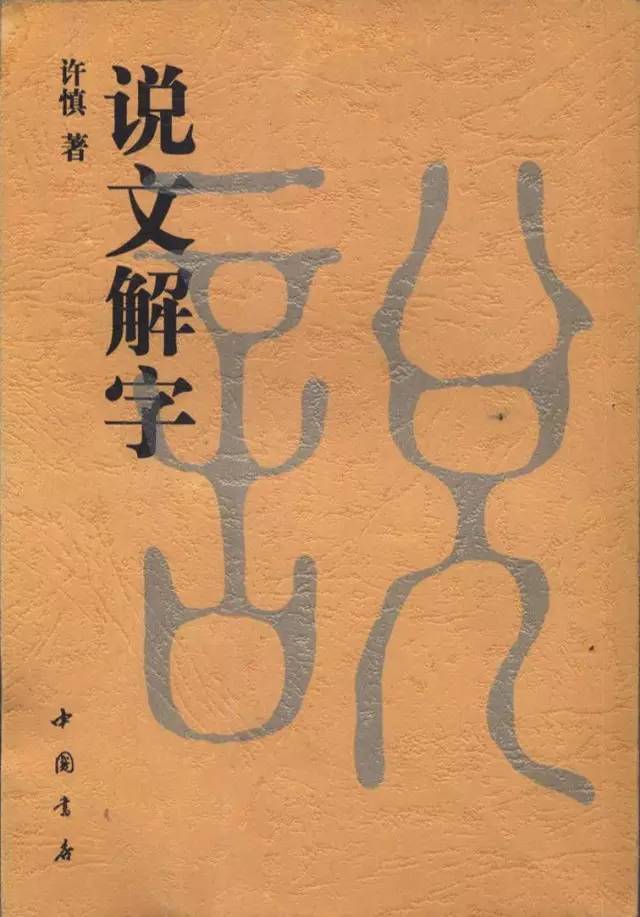 说文解字
许慎 著
說
中国书店